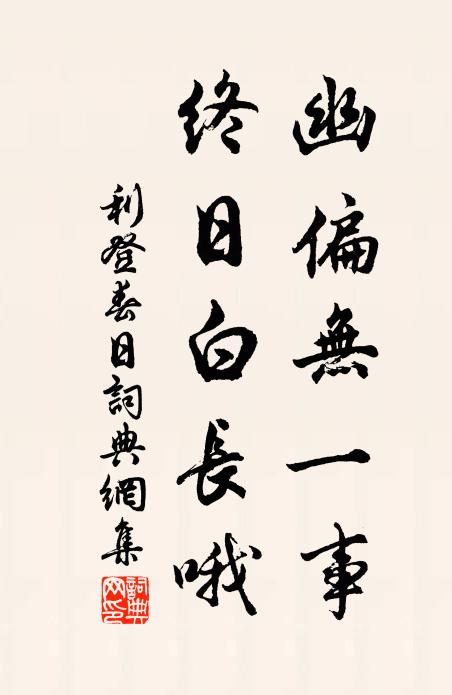 幽偏無一事
終日白長哦
利登春日詞典網集
詞典網印